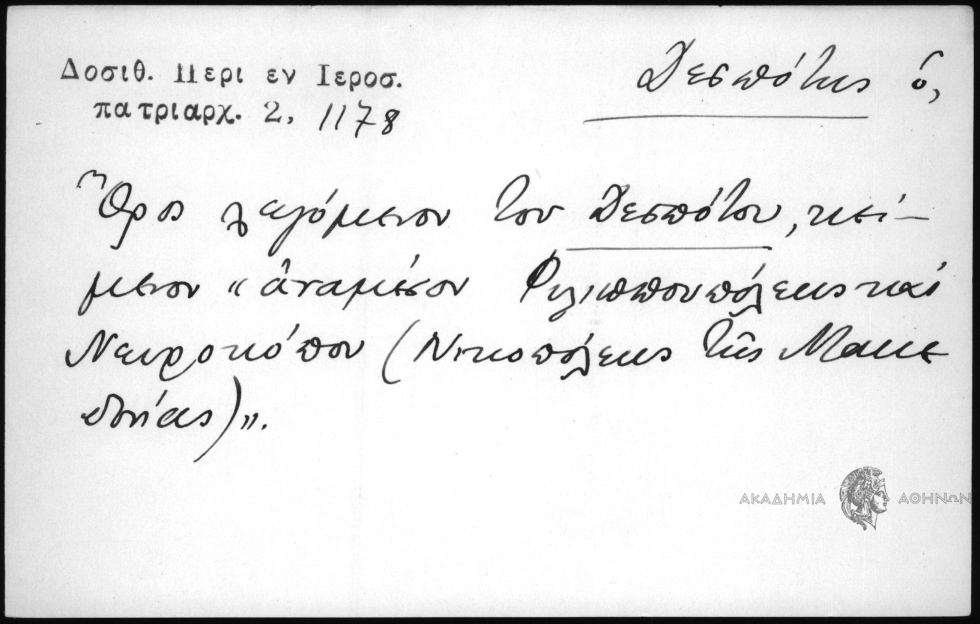 Δοσιθ. Περι εν Ιεροσ.
πατριαρχ. 2, 1178
Δεσπότης ὁ,
Ὄρος λεγόμενον του Δεσπότου, κεί-
μενον «ἀναμέσον Φιλιππουπόλεως καί
Νευροκόπου (Νικοπόλεως τῆς Μακε
δονίας)».
ΑΚΑΔΗΜΙΑ ΑΘΗΝΩΝ